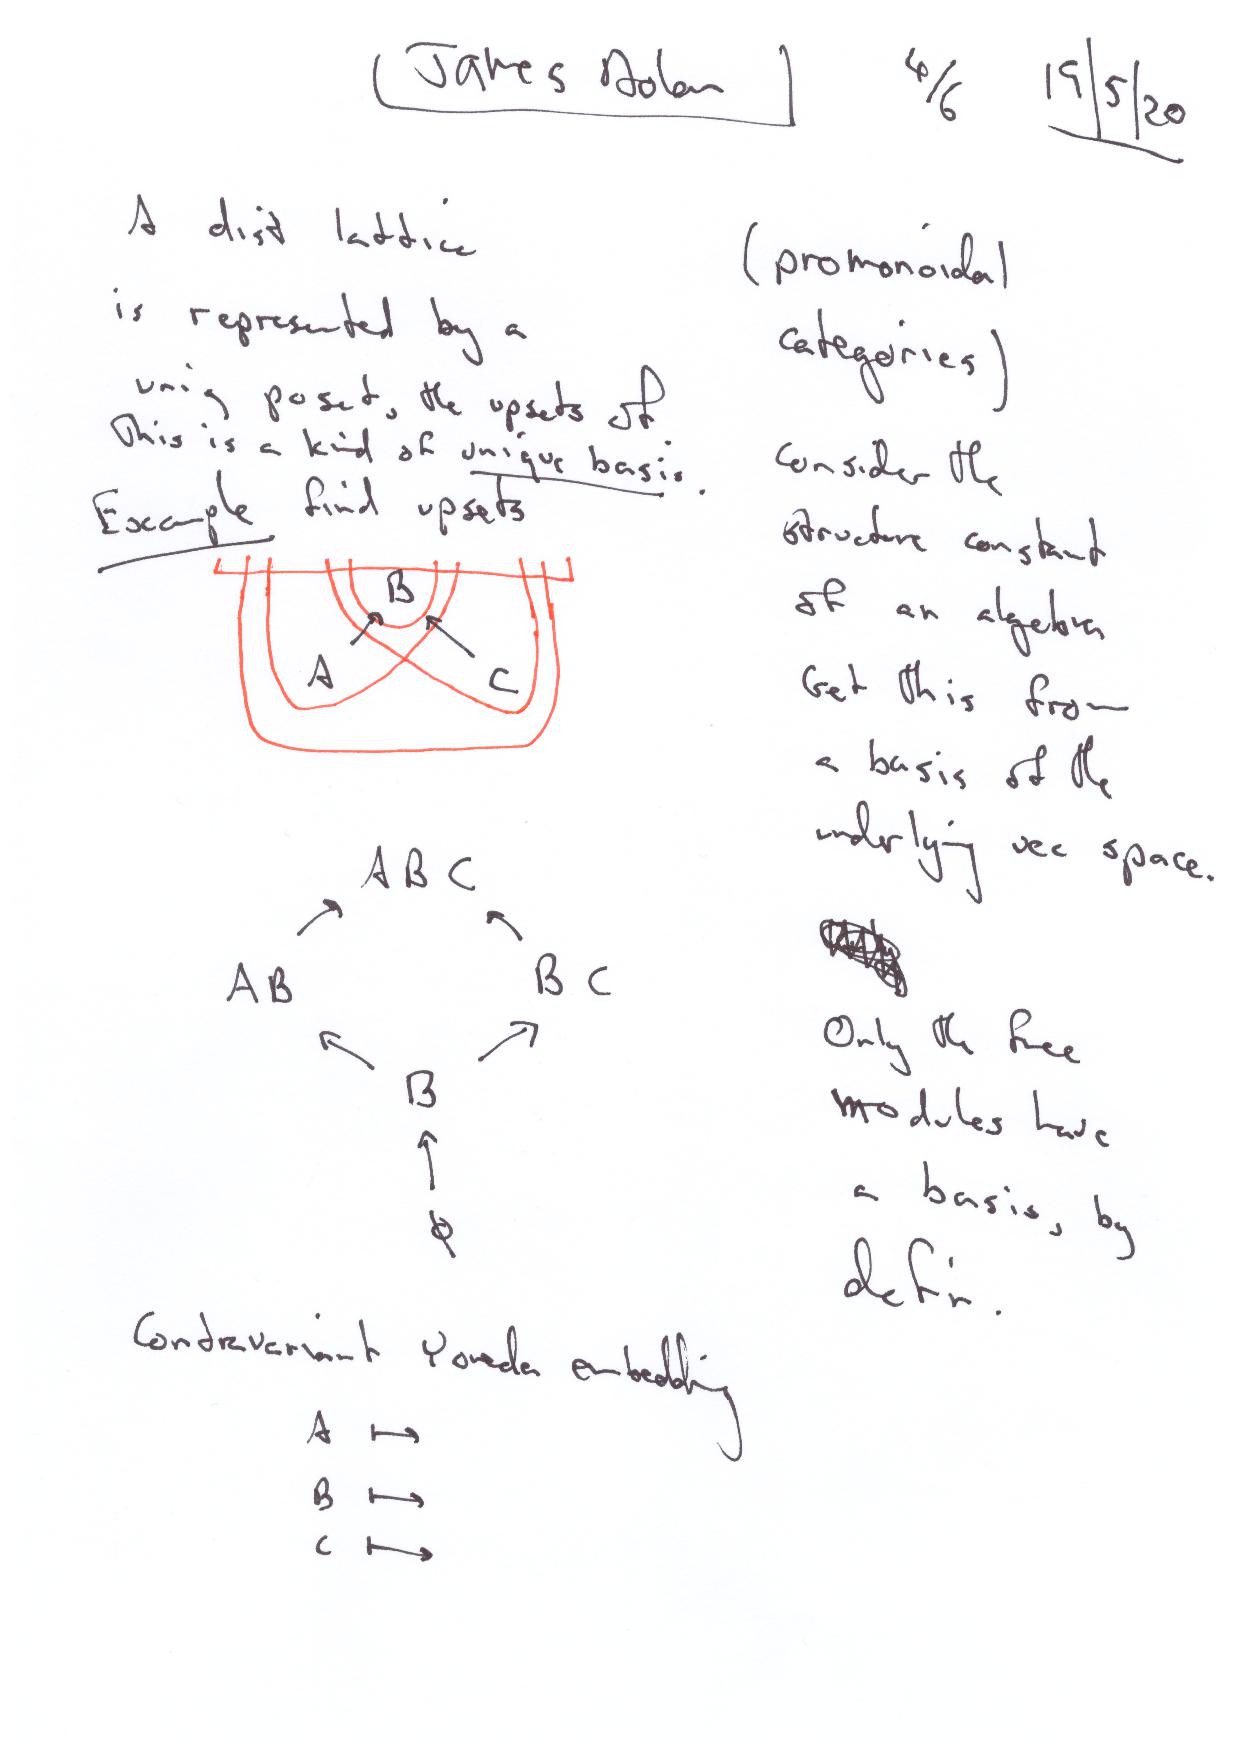 James Dolan
4/6
19/5/20
A dist lattice
is represented by a
uniq poset, the upsets of
This is a kind of unique basis.
Example find upsets
B
A C
A B C
A B B C
B
ϕ
Contravariant Yoneda embedding
A ↦
B ↦
C ↦
(promonoidal
categories)
Consider the
structure constant
of an algebra
Get this from
a basis of the
underlying vec space.
Only the free
modules have
a basis, by
defin.